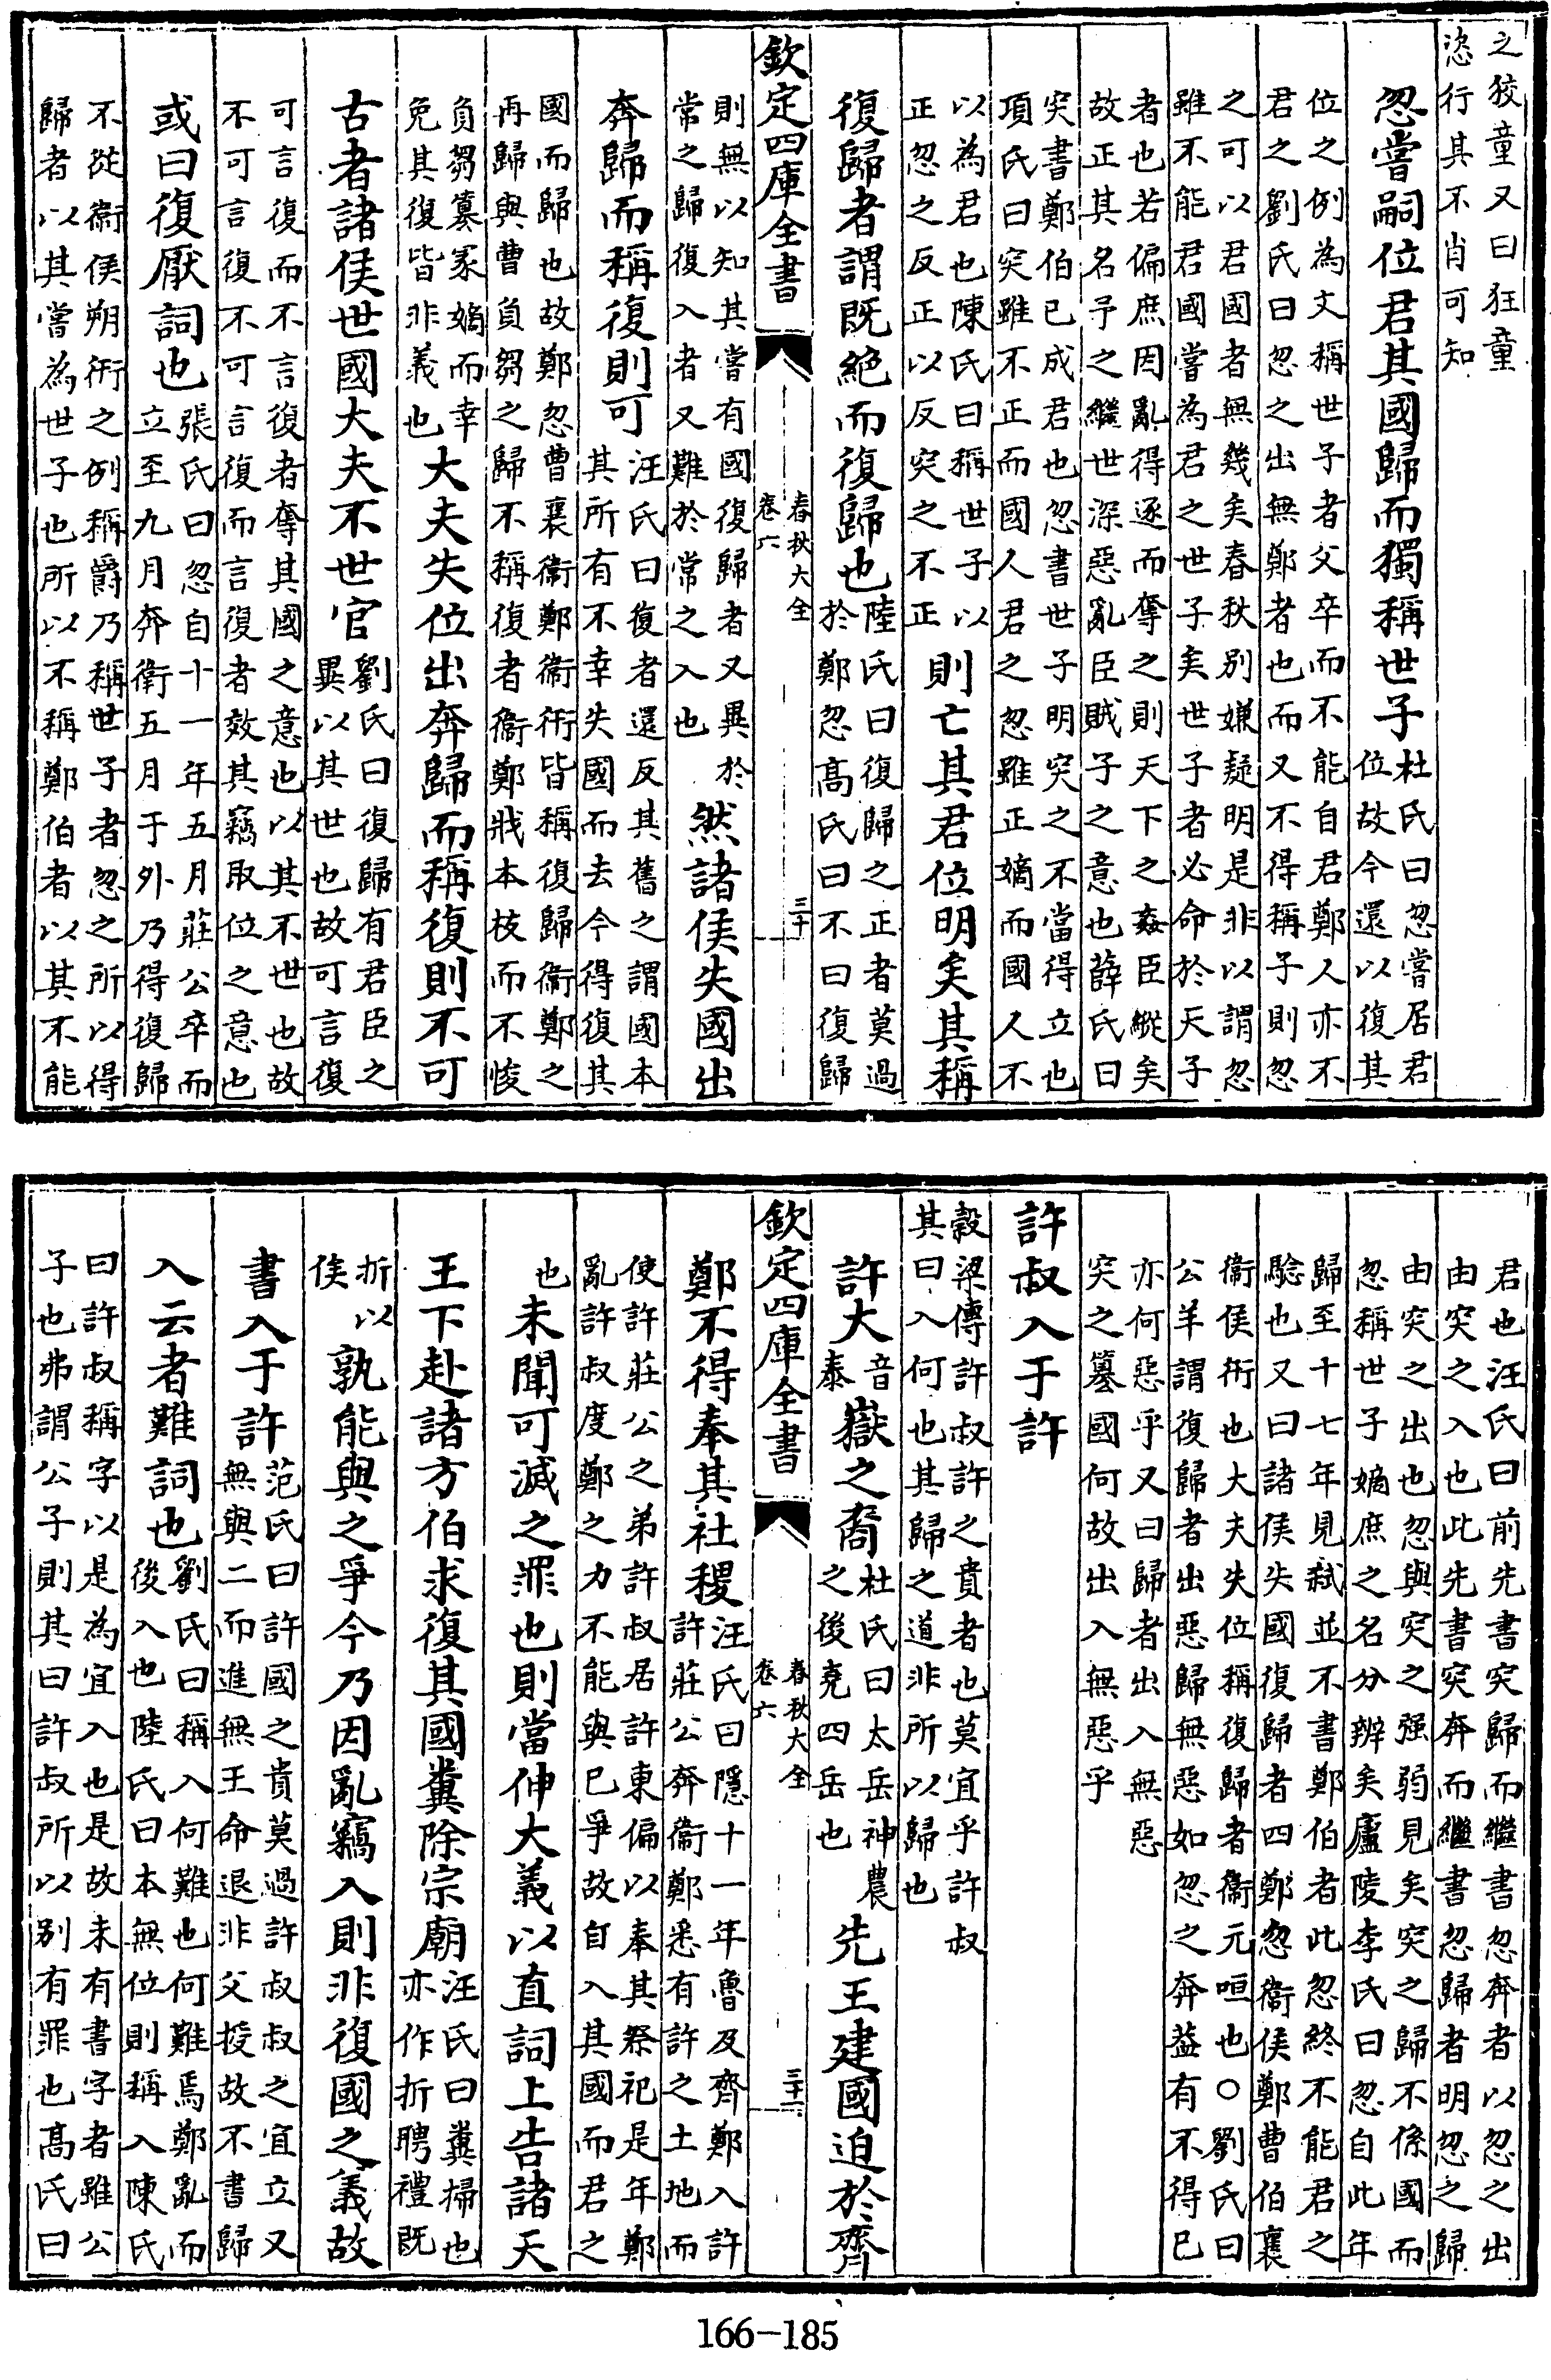 之狡童又曰狂童
恣行其不肖可知
忽嘗嗣位君其國歸而獨稱世子杜氏曰忽嘗居君
位故今還以復其
位之例為文稱世子者父卒而不能自君鄭人亦不
君之劉氏曰忽之出無鄭者也而又不得稱子則忽
之可以君國者無幾矣春秋別嫌疑明是非以謂忽
雖不能君國嘗為君之世子矣世子者必命於天子
者也若偏庶因亂得逐而奪之則天下之姦臣縱矣
故正其名予之繼世深惡亂臣賊子之意也薛氏曰
突書鄭伯已成君也忽書世子明突之不當得立也
項氏曰突雖不正而國人君之忽雖正嫡而國人不
以為君也陳氏曰稱世子以
正忽之反正以反突之不正
則亡其君位明矣其稱
復歸者謂既絶而復歸也陸氏曰復歸之正者莫過
於鄭忽高氏曰不曰復歸
欽定四庫全書
春秋大全
卷六
三十
則無以知其嘗有國復歸者又異於
常之歸復入者又難於常之入也
然諸侯失國出
奔歸而稱復則可汪氏曰復者還反其舊之謂國本
其所有不幸失國而去今得復其
國而歸也故鄭忽曹襄衛鄭衛衎皆稱復歸衛鄭之
再歸與曹負芻之歸不稱復者衛鄭戕本枝而不悛
負芻簒冢嫡而幸
免其復皆非義也
大夫失位出奔歸而稱復則不可
古者諸侯世國大夫不世官劉氏曰復歸有君臣之
異以其世也故可言復
可言復而不言復者奪其國之意也以其不世也故
不可言復不可言復而言復者效其竊取位之意也
或曰復厭詞也張氏曰忽自十一年五月莊公卒而
立至九月奔衛五月于外乃得復歸
不從衛侯朔衎之例稱爵乃稱世子者忽之所以得
歸者以其嘗為世子也所以不稱鄭伯者以其不能
君也汪氏曰前先書突歸而繼書忽奔者以忽之出
由突之入也此先書突奔而繼書忽歸者明忽之歸
由突之出也忽與突之强弱見矣突之歸不係國而
忽稱世子嫡庶之名分辨矣廬陵李氏曰忽自此年
歸至十七年見弑並不書鄭伯者此忽終不能君之
驗也又曰諸侯失國復歸者四鄭忽衛侯鄭曹伯襄
衛侯衎也大夫失位稱復歸者衛元咺也○劉氏曰
公羊謂復歸者出惡歸無惡如忽之奔蓋有不得已
亦何惡乎又曰歸者出入無惡
突之簒國何故出入無惡乎
許叔入于許
穀梁傳許叔許之貴者也莫宜乎許叔
其曰入何也其歸之道非所以歸也
許大音
泰
嶽之裔杜氏曰太岳神農
之後堯四岳也
先王建國迫於齊
欽定四庫全書
春秋大全
卷六
三十一
鄭不得奉其社稷汪氏曰隱十一年魯及齊鄭入許
許莊公奔衛鄭悉有許之土地而
使許莊公之弟許叔居許東偏以奉其祭祀是年鄭
亂許叔度鄭之力不能與已爭故自入其國而君之
也
未聞可滅之罪也則當伸大義以直詞上告諸天
王下赴諸方伯求復其國糞除宗廟汪氏曰糞掃也
亦作折聘禮既
折以
侯
孰能與之爭今乃因亂竊入則非復國之義故
書入于許范氏曰許國之貴莫過許叔叔之宜立又
無與二而進無王命退非父授故不書歸
入云者難詞也劉氏曰稱入何難也何難焉鄭亂而
後入也陸氏曰本無位則稱入陳氏
曰許叔稱字以是為宜入也是故未有書字者雖公
子也弗謂公子則其曰許叔所以别有罪也高氏曰
166-185